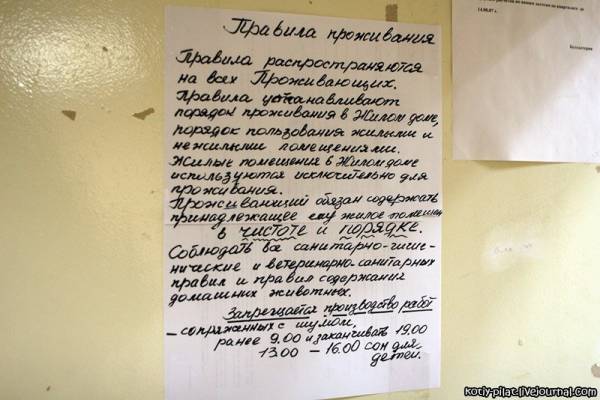 Правила проживания
Правила распространяются
на всех Проживающих.
Правила устанавливают
порядок проживания в Жилом доме,
порядок пользования жилыми и
нежилыми помещениями.
Жилые помещения в Жилом доме
используются исключительно для
проживания.
Проживающий обязан содержать
принадлежащее ему жилое помещен
в чистоте и порядке.
Соблюдать все санитарно-гигие-
нические и ветеринарно-санитарных
правил и правил содержания
домашних животных.
Запрещается производство работ
– сопряженных с шумом,
ранее 9.00 и заканчивать 19.00
13.00 – 16.00 сон для
детей.
14.08.07 г.
Бухгалтерия
kotiy-pilat.livejournal.com